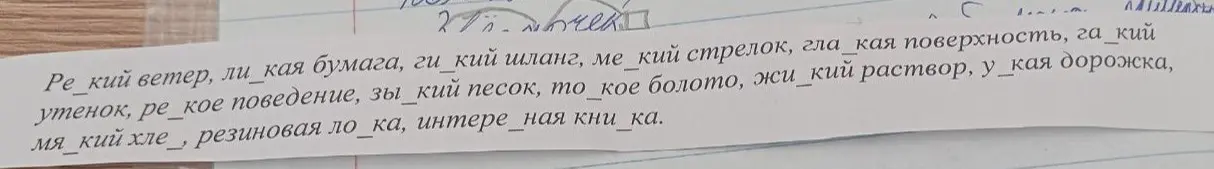 Ре_кий ветер, ли_кая бумага, ги_кий шланг, ме_кий стрелок, гла_кая поверхность, га_кий
утенок, ре_кое поведение, зы_кий песок, то_кое болото, жи_кий раствор, у_кая дорожка,
мя_кий хле_, резиновая ло_ка, интере_ная кни_ка.